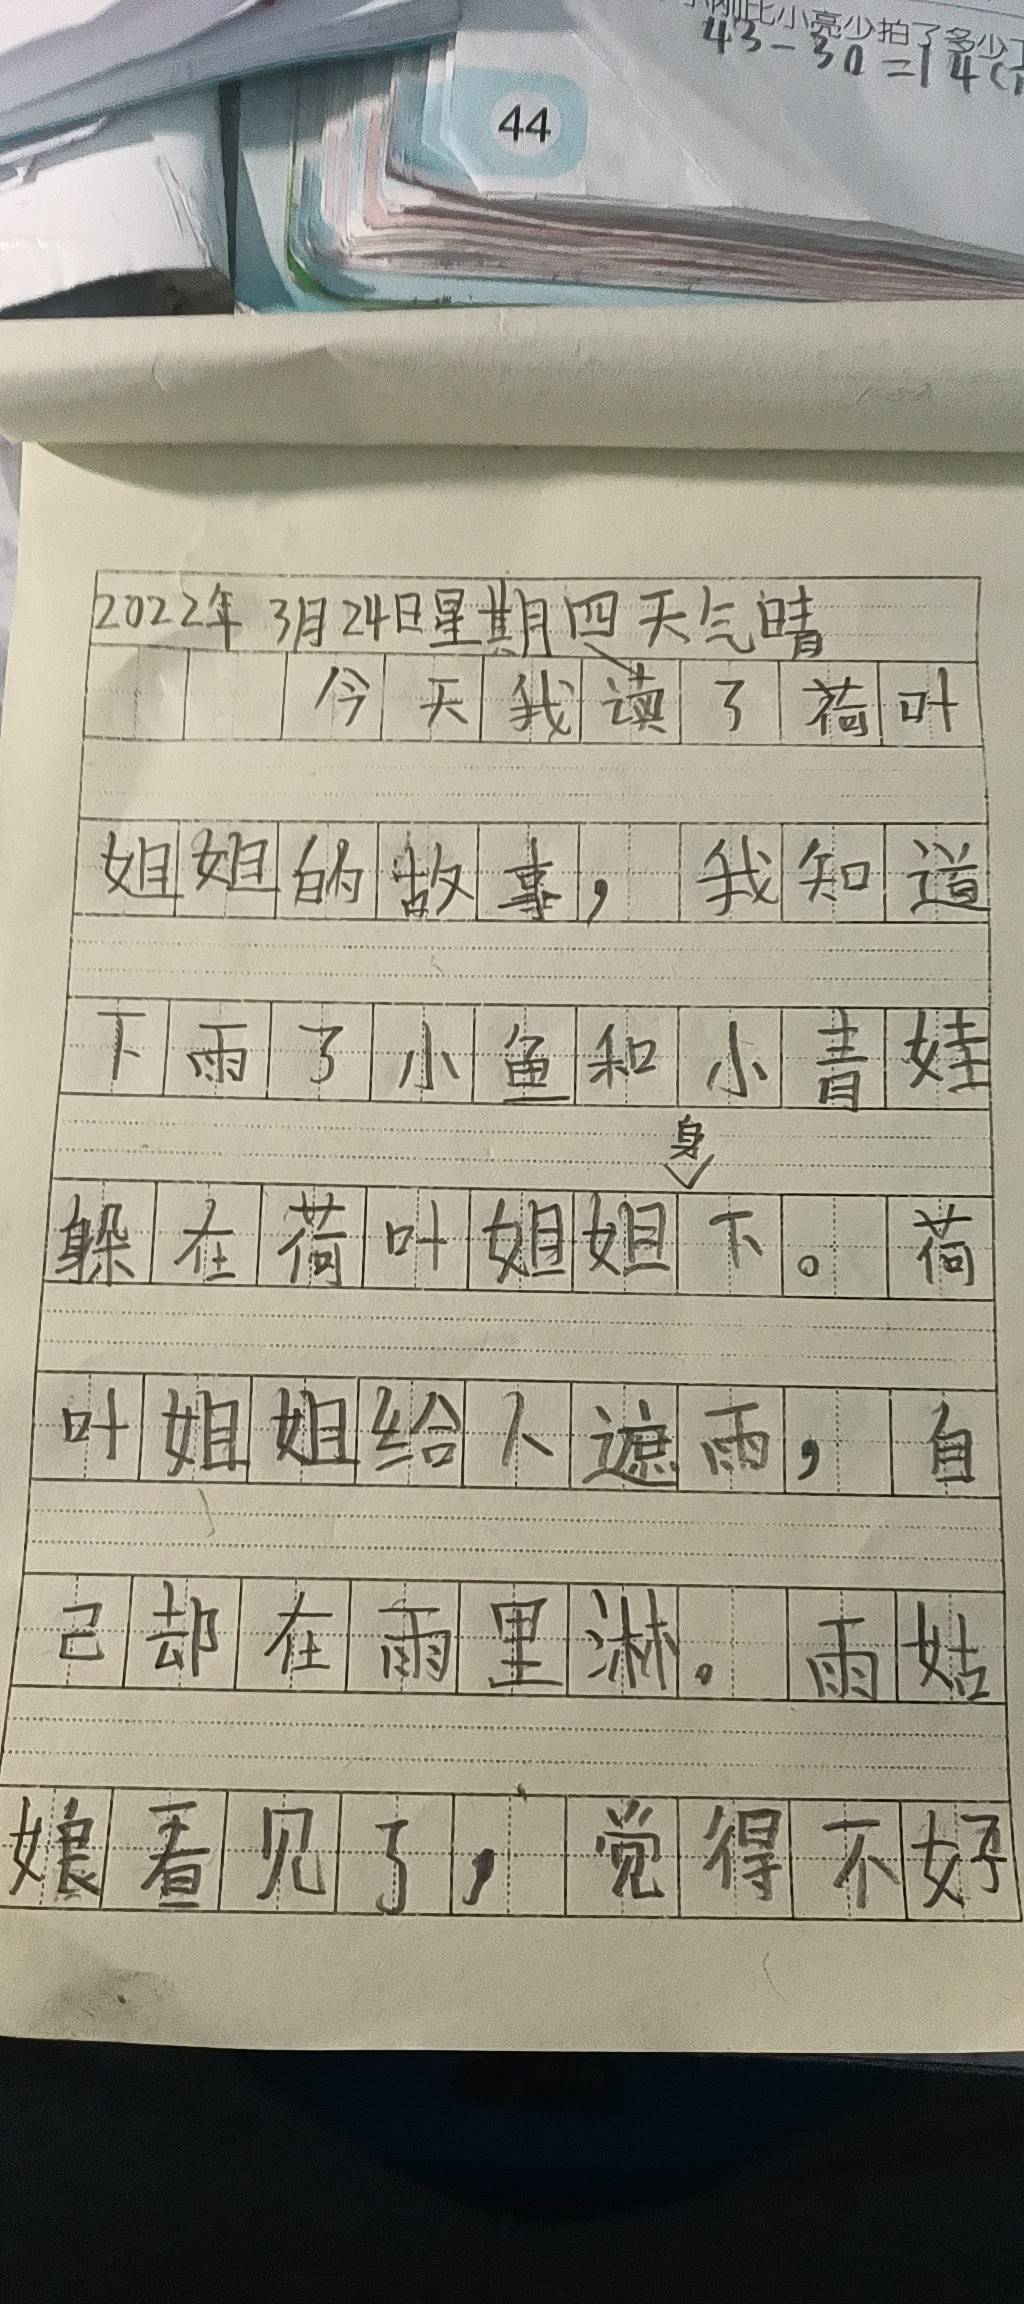 小刚比小亮少拍了多少
43-30=14(
44
2022年3月24日星期四天气晴
今天我读了荷叶
姐姐的故事，我知道
下雨了小鱼和小青娃
身
躲在荷叶姐姐下。荷
叶姐姐给人遮雨，自
己却在雨里淋。雨姑
娘看见了，觉得不好